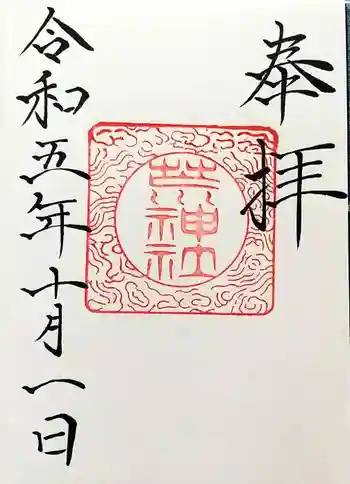 奉拝
神社
令和五年十月一日